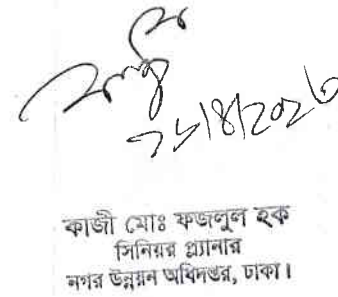 কাজী মোঃ ফজলুল হক
সিনিয়র প্ল্যানার
নগর উন্নয়ন অধিদপ্তর, ঢাকা।